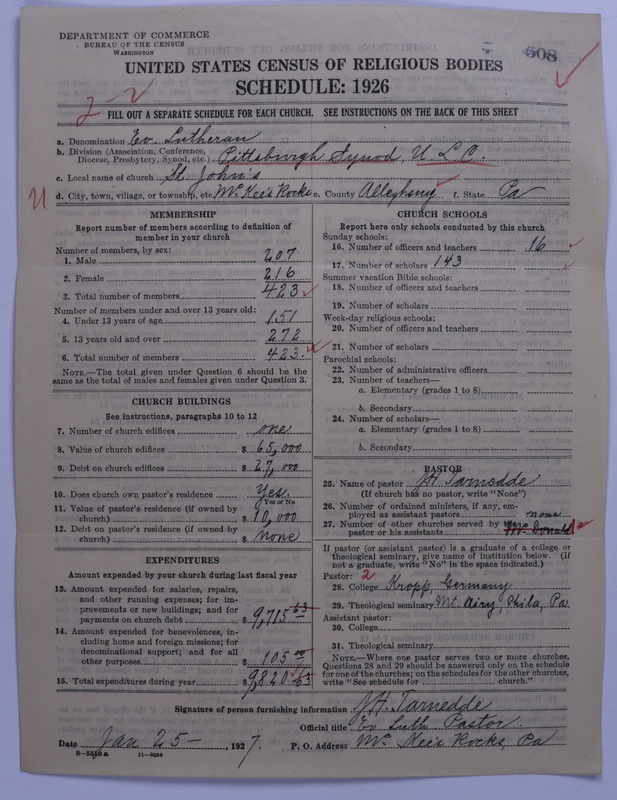 DEPARTMENT OF COMMERCE
BUREAU OF THE CENSUS
WASHINGTON
508
UNITED STATES CENSUS OF RELIGIOUS BODIES
SCHEDULE: 1926
2-2
FILL OUT A SEPARATE SCHEDULE FOR EACH CHURCH. SEE INSTRUCTIONS ON THE BACK OF THIS SHEET
a. Denomination Ev. Lutheran
b. Division (Association, Conference, Diocese, Presbytery, Synod, etc.) Pittsburgh Synod, U. L. C.
c. Local name of church St. John's
d. City, town, village, or township, etc. Mc Kee's Rocks e. County Allegheny f. State Pa
MEMBERSHIP
Report number of members according to definition of
member in your church
Number of members, by sex:
1. Male 207
2. Female 216
3. Total number of members 423
Number of members under and over 13 years old:
4. Under 13 years of age 151
5. 13 years old and over 272
6. Total number of members 423.
NOTE.—The total given under Question 6 should be
same as the total of males and females given under Question 3.
CHURCH BUILDINGS
See instructions, paragraphs 10 to 12
7. Number of church edifices one
8. Value of church edifices $ 65,000
9. Debt on church edifices $ 27,000
10. Does church own pastor's residence Yes.
Yes or No
11. Value of pastor's residence (if owned by
church) $ 10,000
12. Debt on pastor's residence (if owned by
church) $ none
EXPENDITURES
Amount expended by your church during last fiscal year
13. Amount expended for salaries, repairs,
and other running expenses; for im-
provements or new buildings; and for
payments on church debt $ 9,715 63
14. Amount expended for benevolences, in-
cluding home and foreign missions; for
denominational support; and for all
other purposes $ 105 00
15. Total expenditures during year $ 9820 63
CHURCH SCHOOLS
Report here only schools conducted by this church
Sunday schools:
16. Number of officers and teachers 16
17. Number of scholars 143
Summer vacation Bible schools:
18. Number of officers and teachers
19. Number of scholars
Week-day religious schools:
20. Number of officers and teachers
21. Number of scholars
Parochial schools:
22. Number of administrative officers
23. Number of teachers—
a. Elementary (grades 1 to 8)
b. Secondary
24. Number of scholars—
a. Elementary (grades 1 to 8)
b. Secondary
PASTOR
25. Name of pastor J H Tarnedde
(If church has no pastor, write "None")
26. Number of ordained ministers, if any, em-
ployed as assistant pastors none
27. Number of other churches served by
pastor or his assistants Mc Donald
If pastor (or assistant pastor) is a graduate of a college or
theological seminary, give name of institution below. (If
not a graduate, write "No" in the space indicated.)
Pastor: 2
28. College Kropp, Germany
29. Theological seminary Mt. Airy, Phila, Pa
Assistant pastor:
30. College
31. Theological seminary
NOTE.—Where one pastor serves two or more churches,
Questions 28 and 29 should be answered only on the schedule
for one of the churches; on the schedules for the other churches,
write "See schedule for church."
Signature of person furnishing information J H. Tarnedde
Official title Ev Luth Pastor
Date Jan 25 — , 1927. P. O. Address Mc Kee's Rocks, Pa
8—5516 a 11—9034